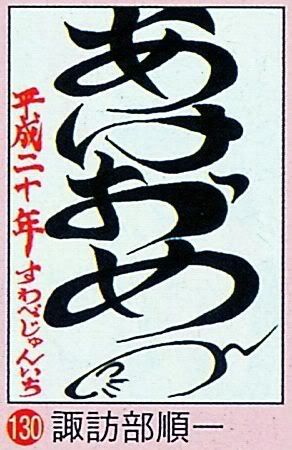 あけおめ
平成二十年 すわべじゅんいち
130 諏訪部順一